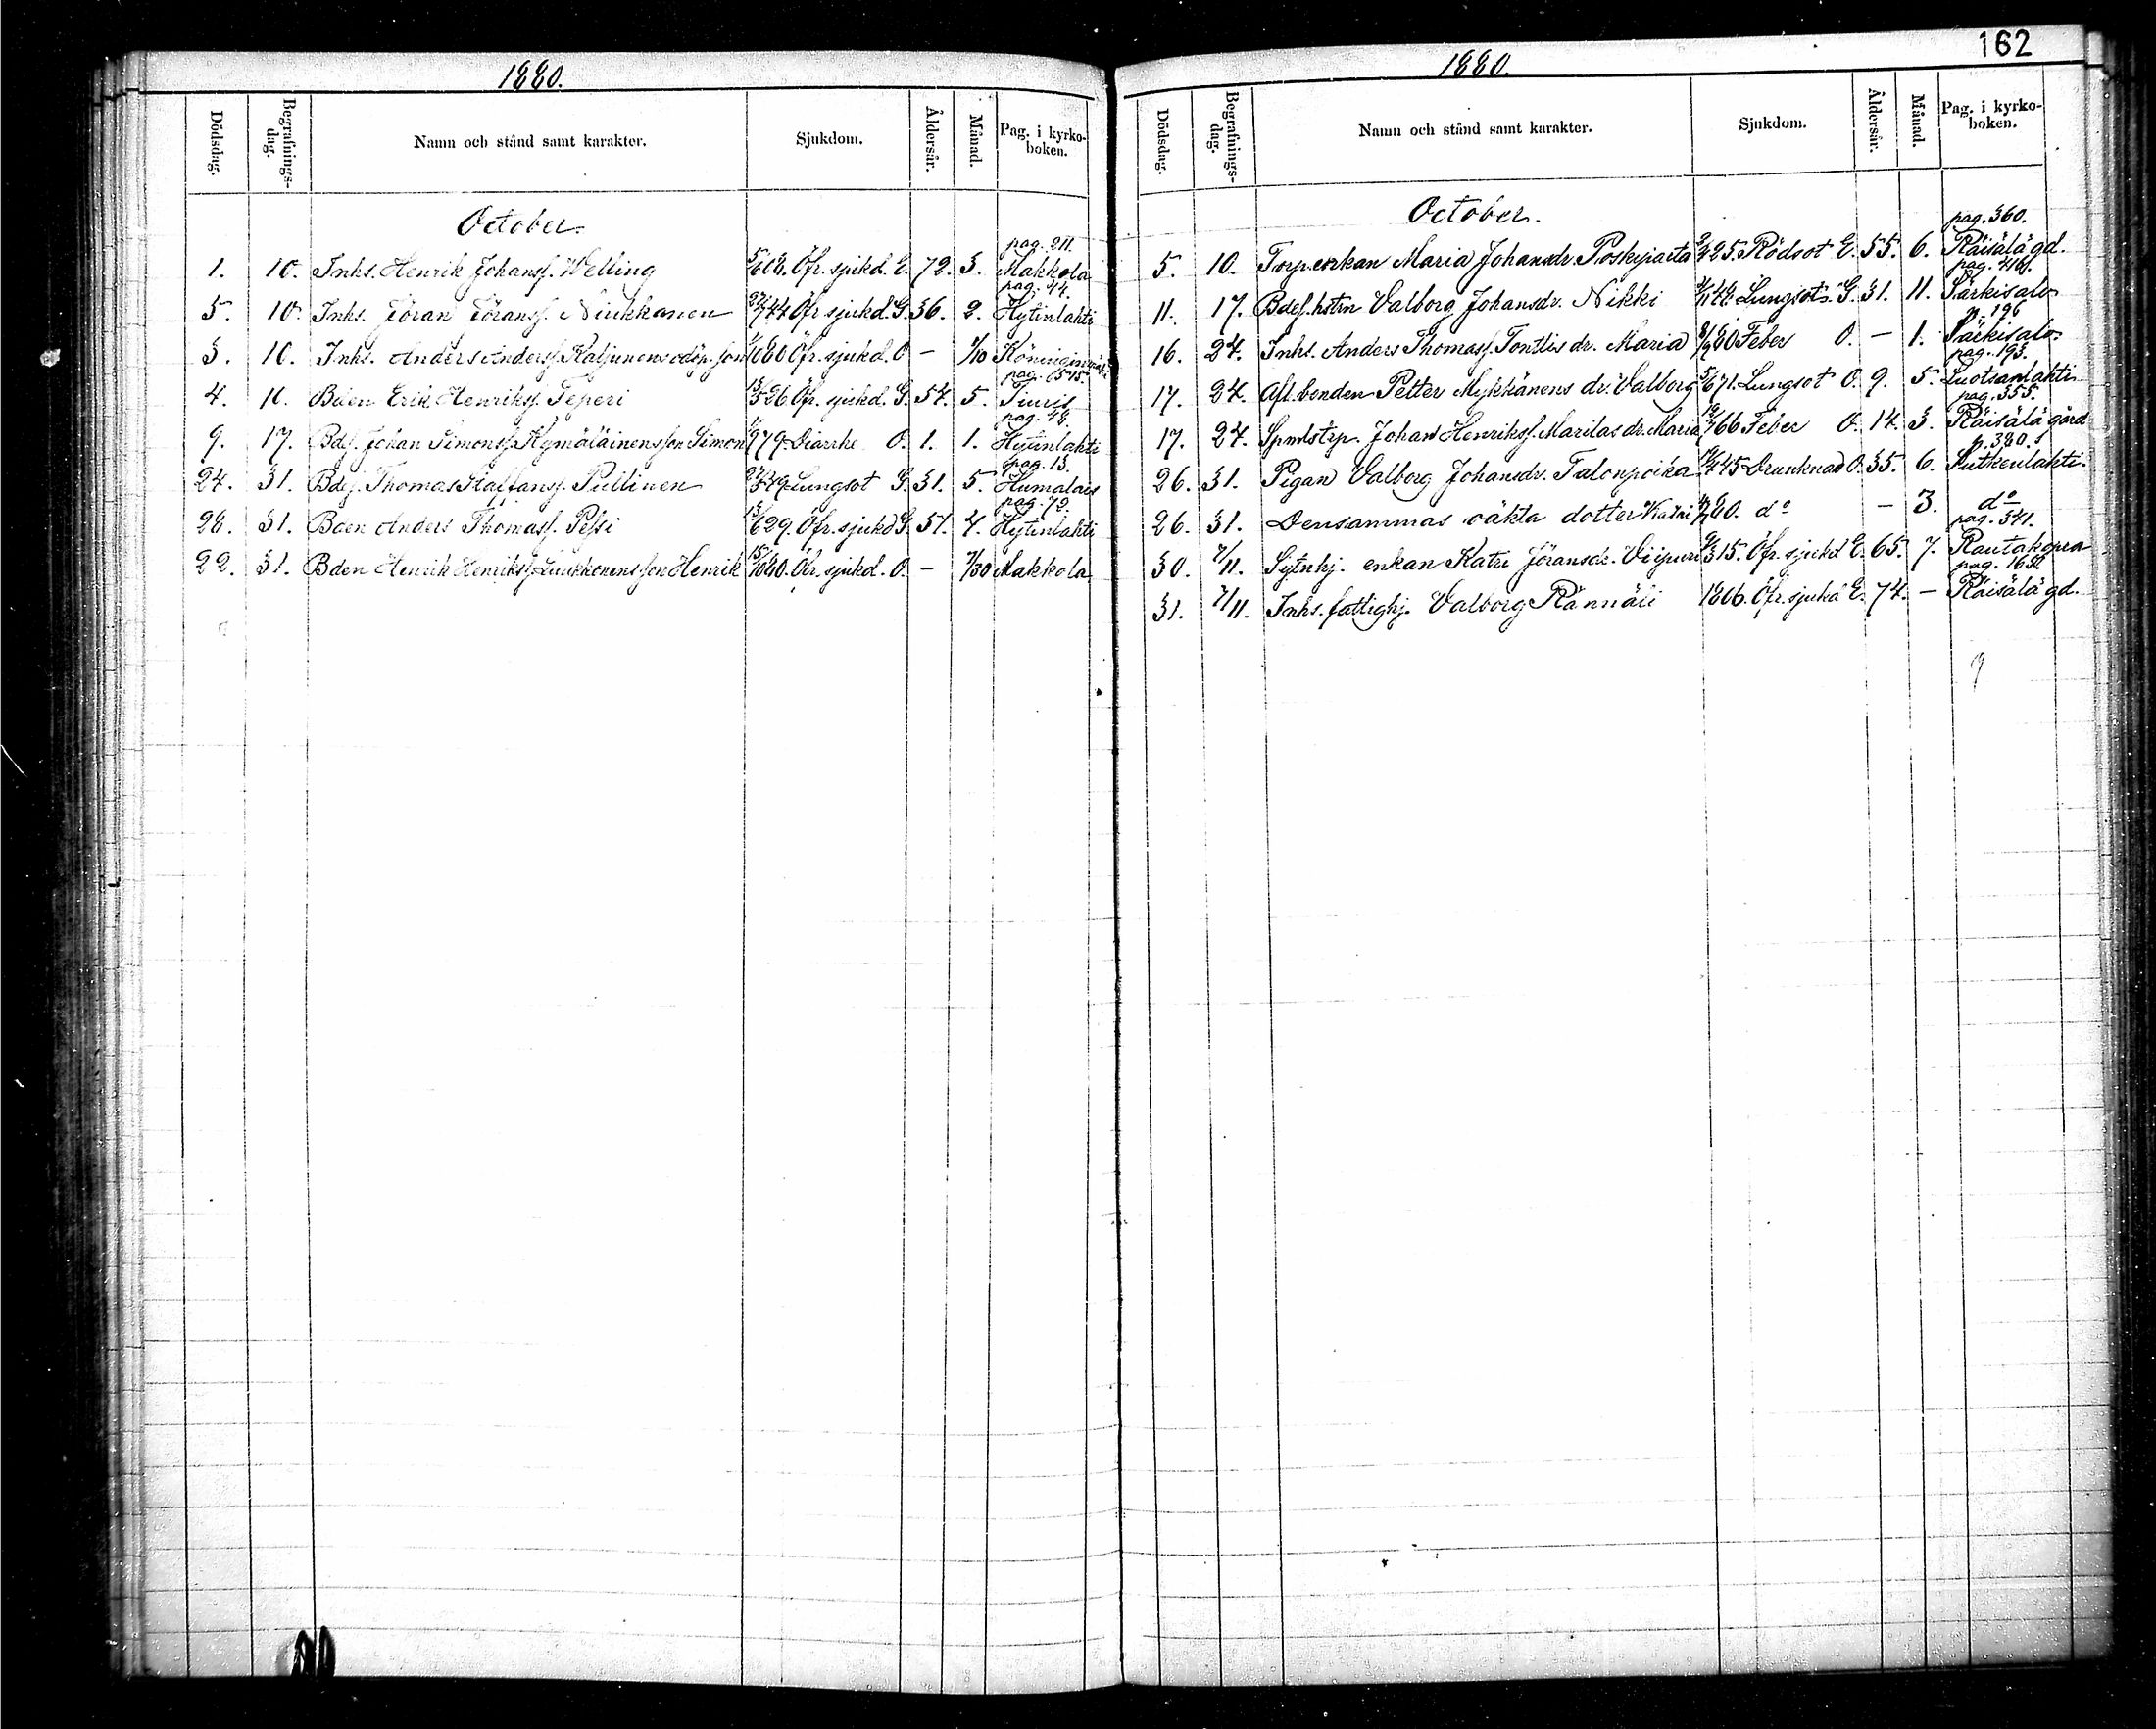 162
1880.
Dödsdag. Begrafnings-dag. Namn och stånd samt karakter. Sjukdom. Åldersår. Månad. Pag. i kyrko-boken.
October.
pag. 211.
1. 10. Inhs. Henrik Johanss. Welling 5/6 08. Öfr. sjukd. E. 72. 3. Makkola
pag. 44.
5. 10. Inhs. Jöran Jöranss. Niukkanen 27/7 44 Öfr. sjukd. G. 36. 2. Hytinlahti
3. 10. Inhs. Anders Anderss. Kaljunens odöp. son 1/10 80 Öfr. sjukd. O. — 1/10
4. 10. Bden Erik Henrikss. Teperi 13/5 26 Öfr. sjukd. G. 54. 5. Tiuris
pag. 48.
9. 17. Bds. Johan Simonss. Hymäläinens son Simon 79. Diarrhe O. 1. 1. Hytinlahti
pag. 13.
24. 31. Bds. Thomas Staffanss. Pullinen 49. Lungsot G. 31. 5. Humalais
pag. 72.
28. 31. Bden Anders Thomass. Pessi 13/6 29. Öfr. sjukd G. 51. 4. Hytinlahti
22. 31. Bden Henrik Henrikss. Luukkonens son Henrik 15/10 80. Öfr. sjukd. O. — 7/30 Makkola
1880.
Dödsdag. Begrafnings-dag. Namn och stånd samt karakter. Sjukdom. Åldersår. Månad. Pag. i kyrko-boken.
October.
pag. 360.
5. 10. Torp.enkan Maria Johansdr. Poskiparta 25. Rödsot E. 55. 6. Räisälä gd.
pag. 416.
11. 17. Bdes. hstrn Valborg Johansdr. Nikki 48. Lungsot G. 31. 11. Särkisalo
p. 196
16. 24. Inhs. Anders Thomass. Tonttis dr. Maria 80 Feber O. — 1. Särkisalo
pag. 193.
17. 24. Afl. bonden Petter Mykkänens dr. Valborg 5/6 71. Lungsot O. 9. 5. Luotsanlahti
pag. 355.
17. 24. Spmlstrp. Johan Henrikss. Marilas dr. Maria 66 Feber O. 14. 3. Räisälä gård
p. 380.
26. 31. Pigan Valborg Johansdr. Talonpoika 45 Drunknad O. 35. 6. Sutkenlahti.
26. 31. Densammas oäkta dotter Katri 80. do — 3. do
pag. 341.
30. 7/11. Sytnhj. enkan Katri Jöransdr. Viipuri 15. Öfr. sjukd E. 65. 7. Rautakopra
31. 7/11. Inhs. fattighj. Valborg Rännäli 1806. Öfr. sjukd E. 74. — Räisälä gd.
9